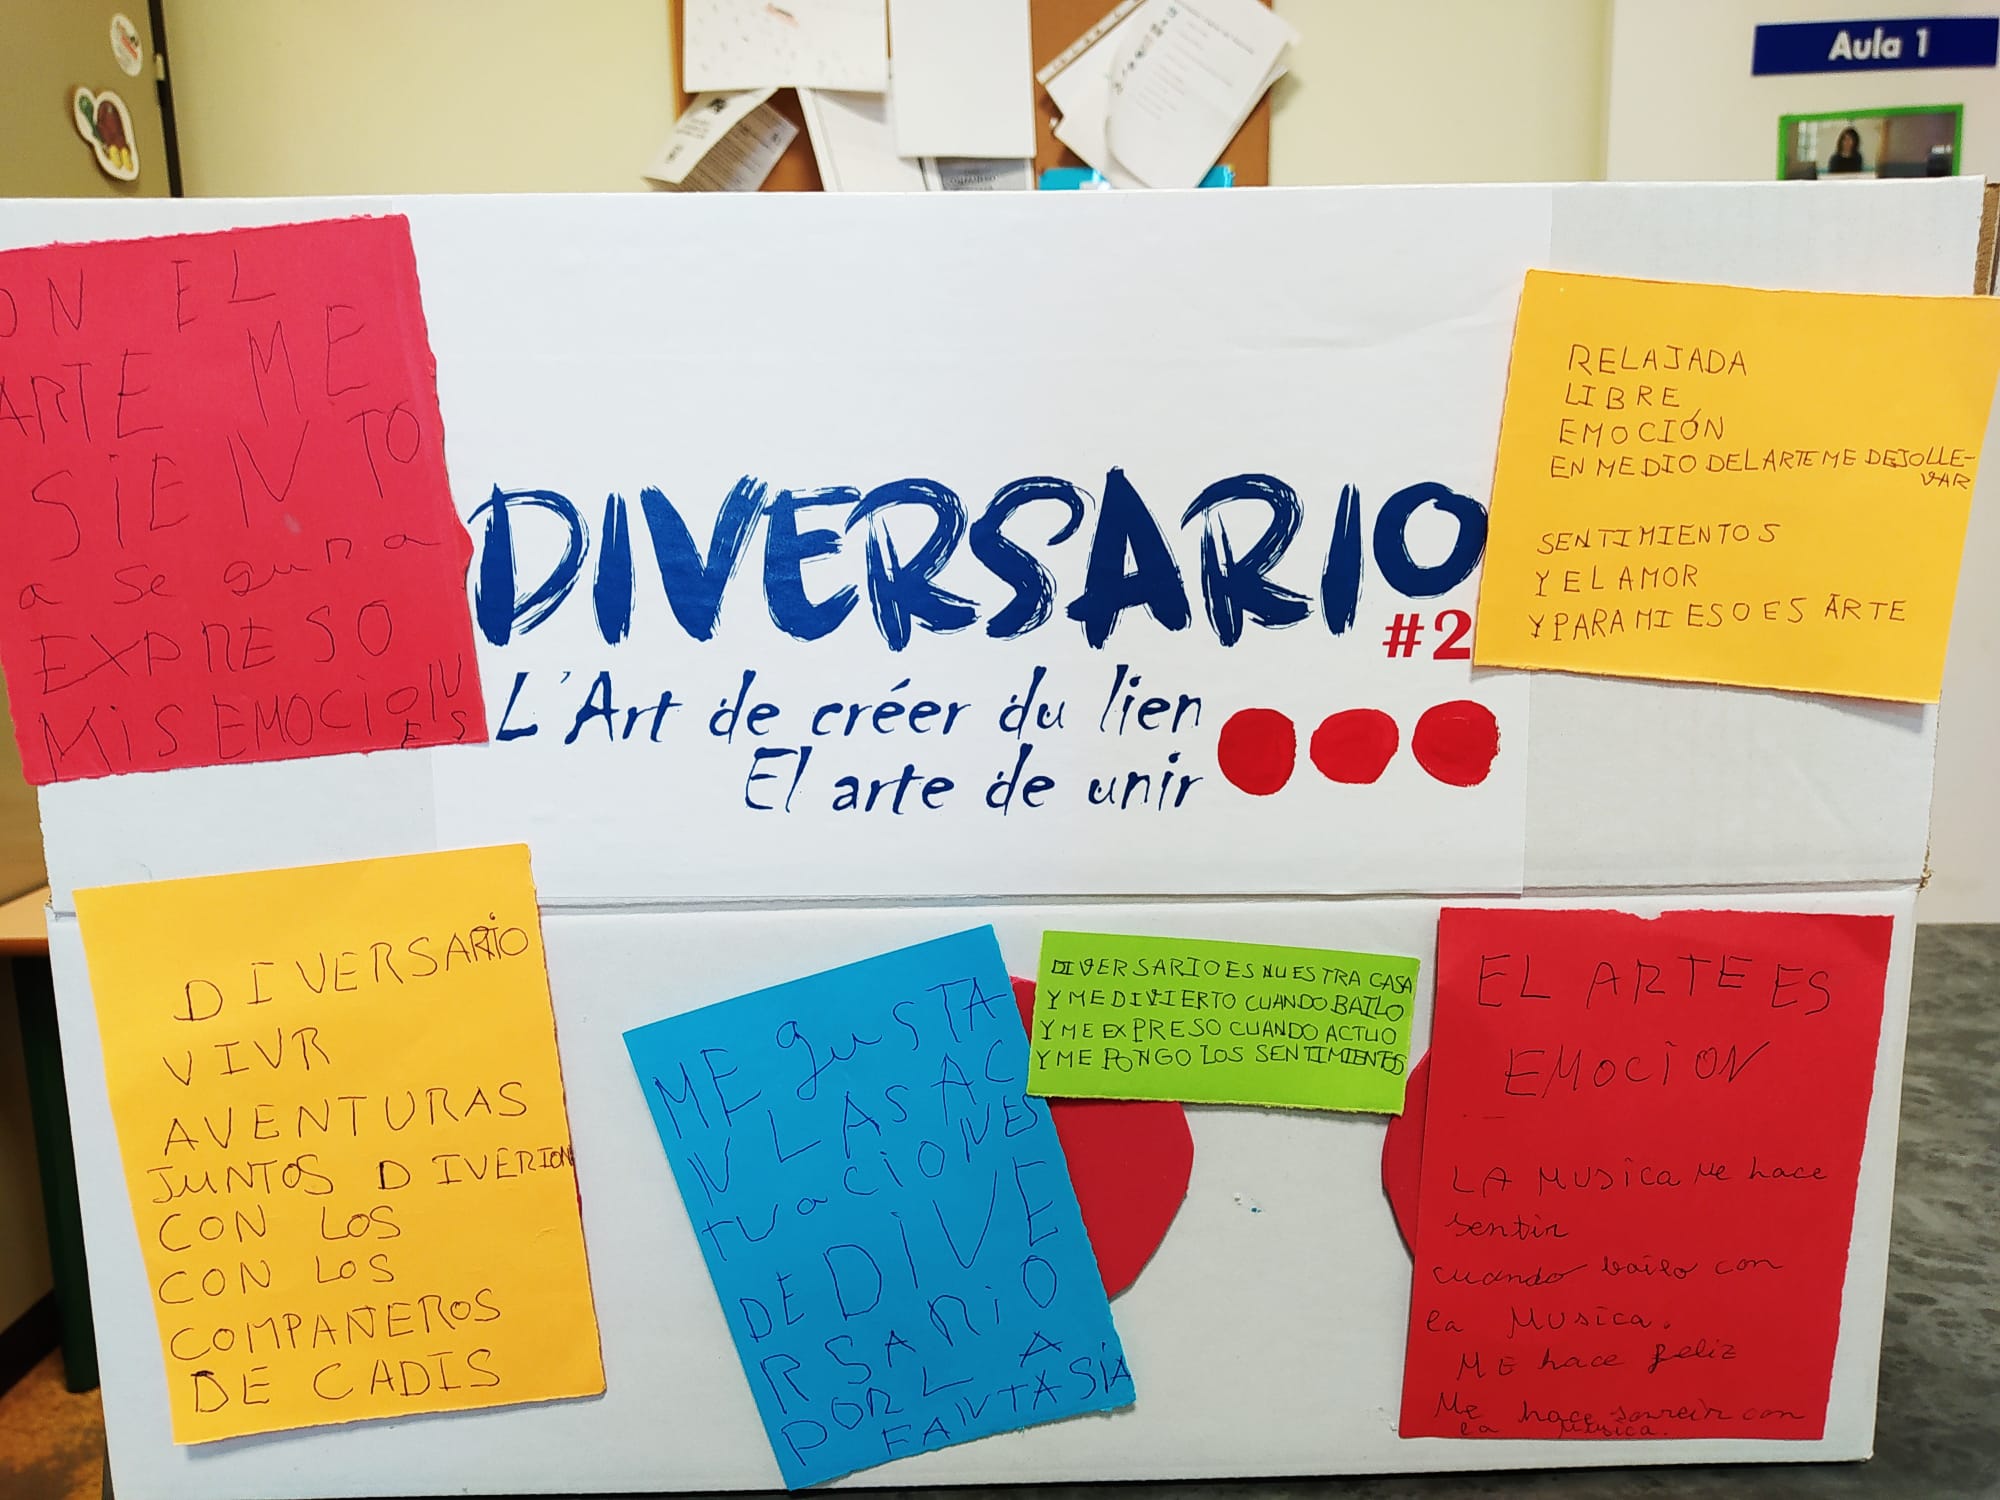 Aula 1
ON EL
ARTE ME
SiENTO
a se guna
EXPRESO
MiS EMOCiON
ES
DIVERSARIO
#2
L'Art de créer du lien
El arte de unir
RELAJADA
LIBRE
EMOCIÓN
EN MEDIO DEL ARTE ME DEJO LLE-
VAR
SENTIMIENTOS
Y EL AMOR
Y PARA MI ESO ES ARTE
DIVERSARIO
VIVR
AVENTURAS
JUNTOS DIVERION
CON LOS
CON LOS
COMPAÑEROS
DE CADIS
ME gusTA
N LAS AC
tuaCiONES
DE DiVE
RSARiO
POR LA
FANTASiA
DIVERSARIO ES NUESTRA CASA
Y ME DIVIERTO CUANDO BAILO
Y ME EXPRESO CUANDO ACTUO
Y ME PONGO LOS SENTIMIENTOS
EL ARTE ES
EMOCiON
LA MUSiCA Me hace
sentir
cuando bailo con
la Musica.
ME hace feliz
Me hace sonreir con
la Musica.